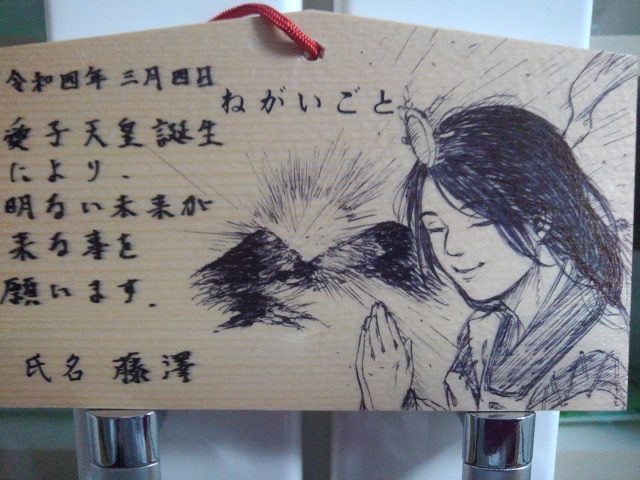 令和四年三月四日
ねがいごと
愛子天皇誕生
により、
明るい未来が
来る事を
願います.
氏名 藤澤